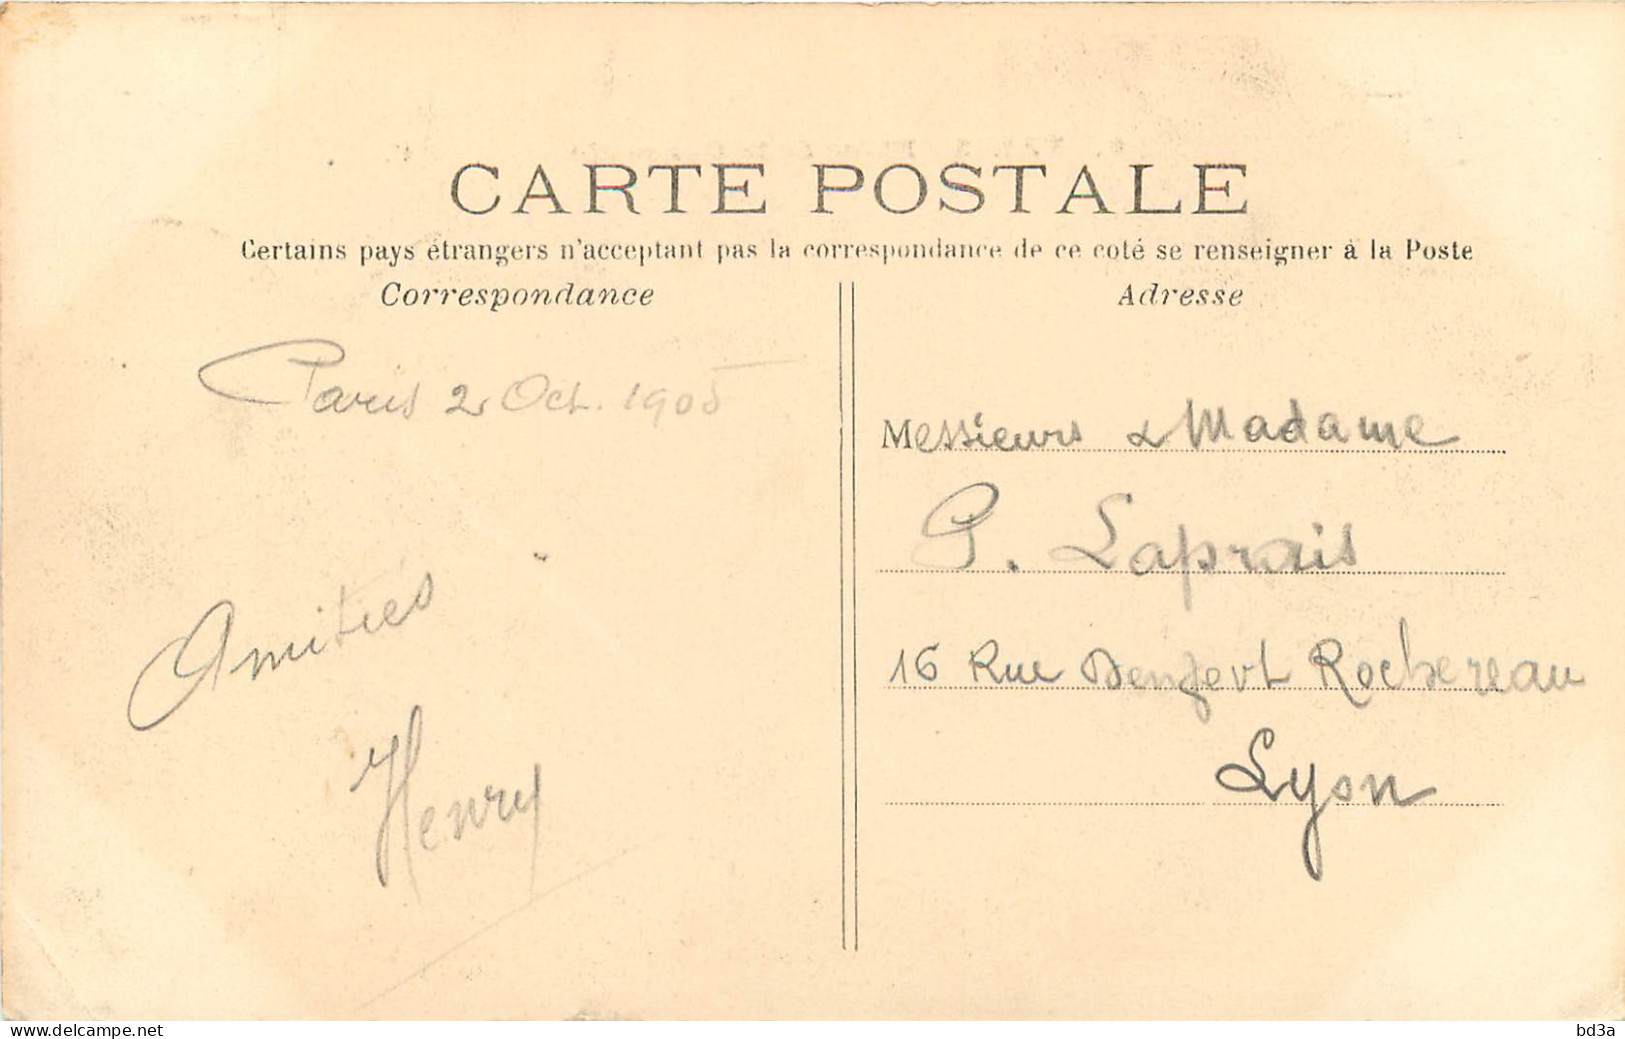 CARTE POSTALE
Certains pays étrangers n'acceptant pas la correspondance de ce coté se renseigner à la Poste
Correspondance
Adresse
Paris 2 Oct. 1905
Amitiés
Henry
Messieurs & Madame
P. Laprais
16 Rue Denfert Rochereau
Lyon
www.delcampe.net
bd3a